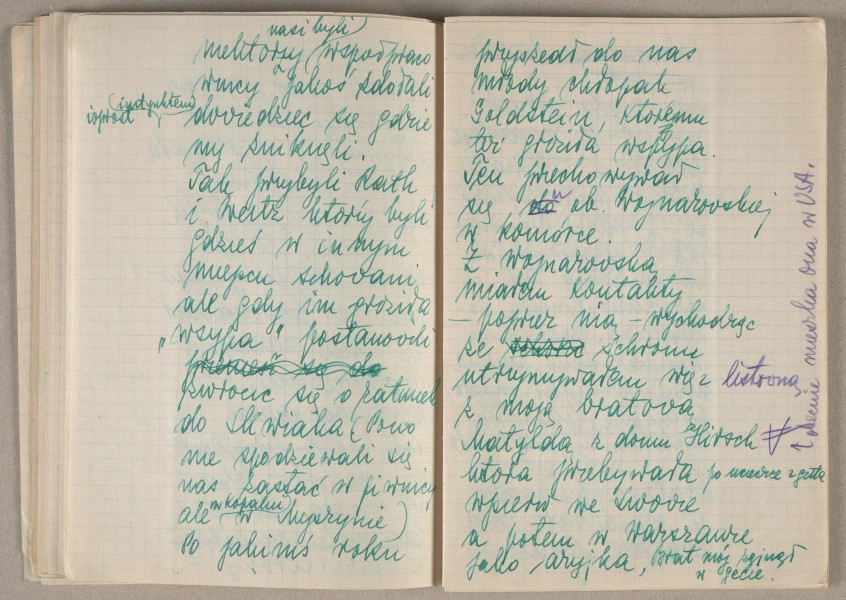 nasi byli)
niektorzy (wspołpraco
wnicy jakoś zdołali
(instynktem)
wprost
dowiedziec się gdzie
my znikneli.
Tak przybyli Rath
i Weitz ktorzy byli
gdzieś w innym
miejscu schowani
ale gdy im groziła
„wsypa" postanowili
zwrocic się o ratunek
do Sliwiaka (Pono
nie spodziewali się
nas zastać w piwnicy
w kopalni)
ale w Myszynie)
Po jakimś roku
przyszedł do nas
młody chłopak
Goldstein, ktoremu
też groziła wsypa.
Ten przechowywał
się u ob. Wojnarovskiej
w komórce.
Z Wojnarovską
miałem kontakty
– poprzez nią – wychodząc
ze schronu
utrzymywałem więź listovną
z moją bratovą
Matyldą z domu Hirsch
ktora przebywała po ucieczce z getta
wpierw we Lwovie
a potem w Warszawie
jako aryjka, Brat mój zginął
w gecie.
obecnie mieszka ona w USA.